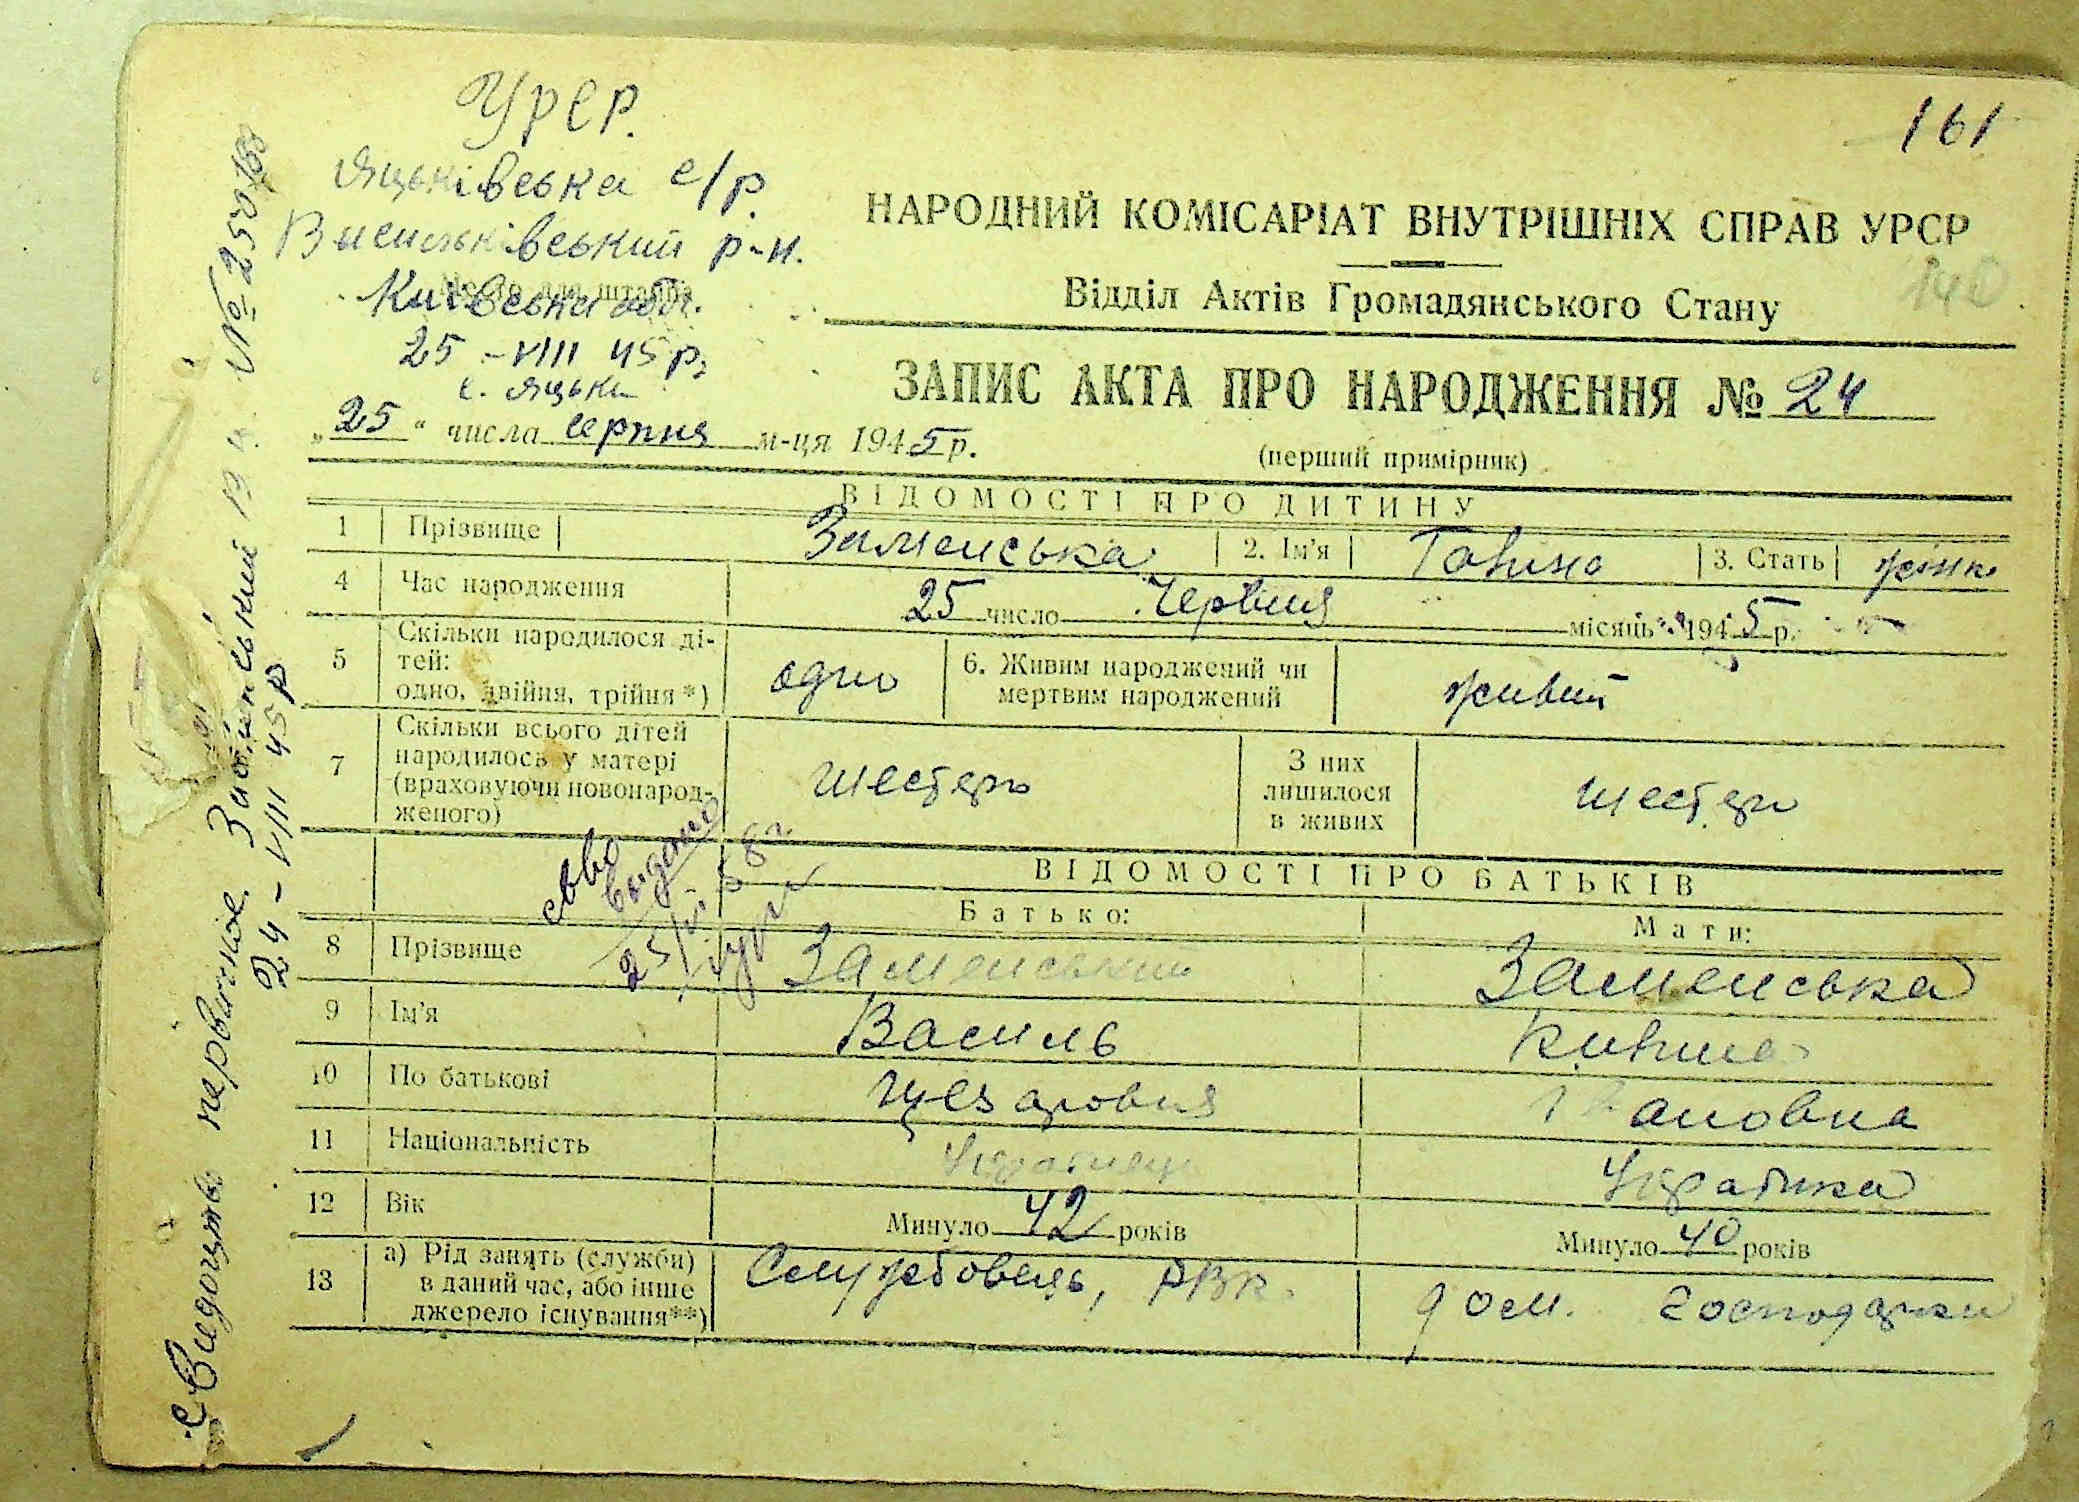 161
УРСР.
Яцьківська с/р.
Васильківський р-н.
Місце для штампа
Київська обл.
25 - VIII 45 р.
с. Яцьки
НАРОДНИЙ КОМІСАРІАТ ВНУТРІШНІХ СПРАВ УРСР
140
Відділ Актів Громадянського Стану
ЗАПИС АКТА ПРО НАРОДЖЕННЯ № 24
„25“ числа серпня м-ця 1945 р.
(перший примірник)
ВІДОМОСТІ ПРО ДИТИНУ
1 Прізвище Заменська 2. Ім'я Галина 3. Стать жінк
4 Час народження 25 число Червня місяць 1945 р.
5 Скільки народилося ді-
тей:
одно, двійня, трійня*) одно 6. Живим народжений чи
мертвим народжений живий
7 Скільки всього дітей
народилось у матері
(враховуючи новонарод-
женого) шестеро З них
лишилося
в живих шестеро
ВІДОМОСТІ ПРО БАТЬКІВ
Батько: Мати:
8 Прізвище Заменський Заменська
9 Ім'я Василь
10 По батькові Івановна
11 Національність Українець Українка
12 Вік Минуло 42 років Минуло 40 років
13 а) Рід занять (служби)
в даний час, або інше
джерело існування**) Службовець, РВК. дом. господарки
св-во
выдано
25/
58 г.
первичное.
24 - VIII 45 р